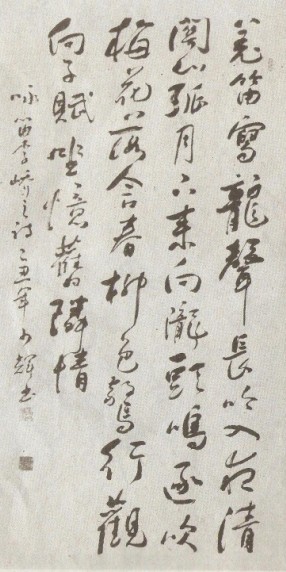 羌笛寫龍聲長吟入夜清
關山孤月下來向隴頭鳴逐吹
梅花落含春柳色驚行觀
向子賦坐憶舊隣情
咏笛李嶠之詩乙丑年少輝書